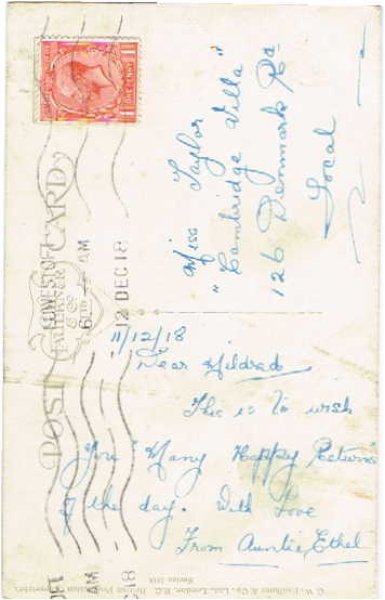 Miss Taylor
"Cambridge Villa"
126 Denmark Rd
Local
ONE PENNY
LOWESTOFT
6 AM
12 DEC 18
POST CARD
11/12/18
Dear Mildred
This is to wish
You "Many Happy Returns
of the day. With Love
From Auntie Ethel
C. W. Faulkner & Co., Ltd., London, E.C.
Series